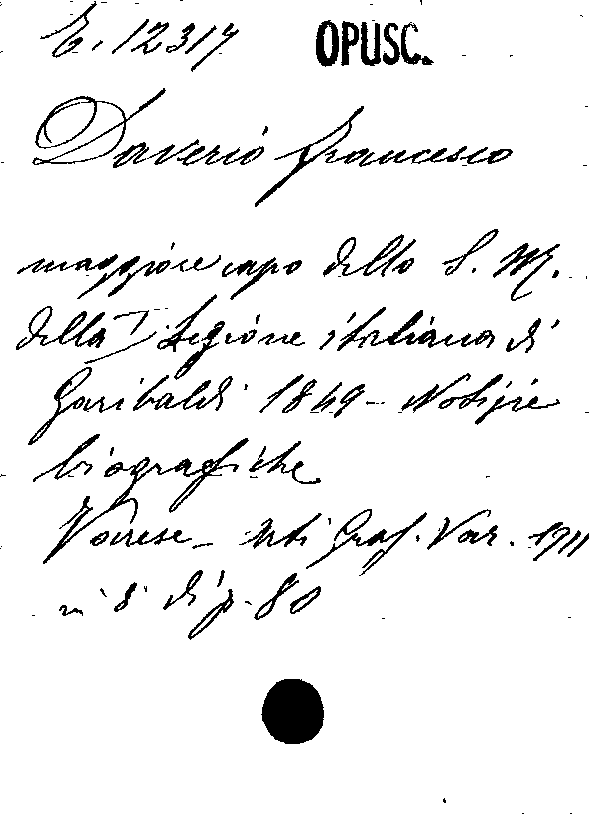 E. 12317 OPUSC.
Daverio Francesco
maggiore capo dello S. M.
della I Legione italiana di
Garibaldi 1849 - Notizie
biografiche
Varese - Arti Graf. Var. 1911
in 8° di p. 80